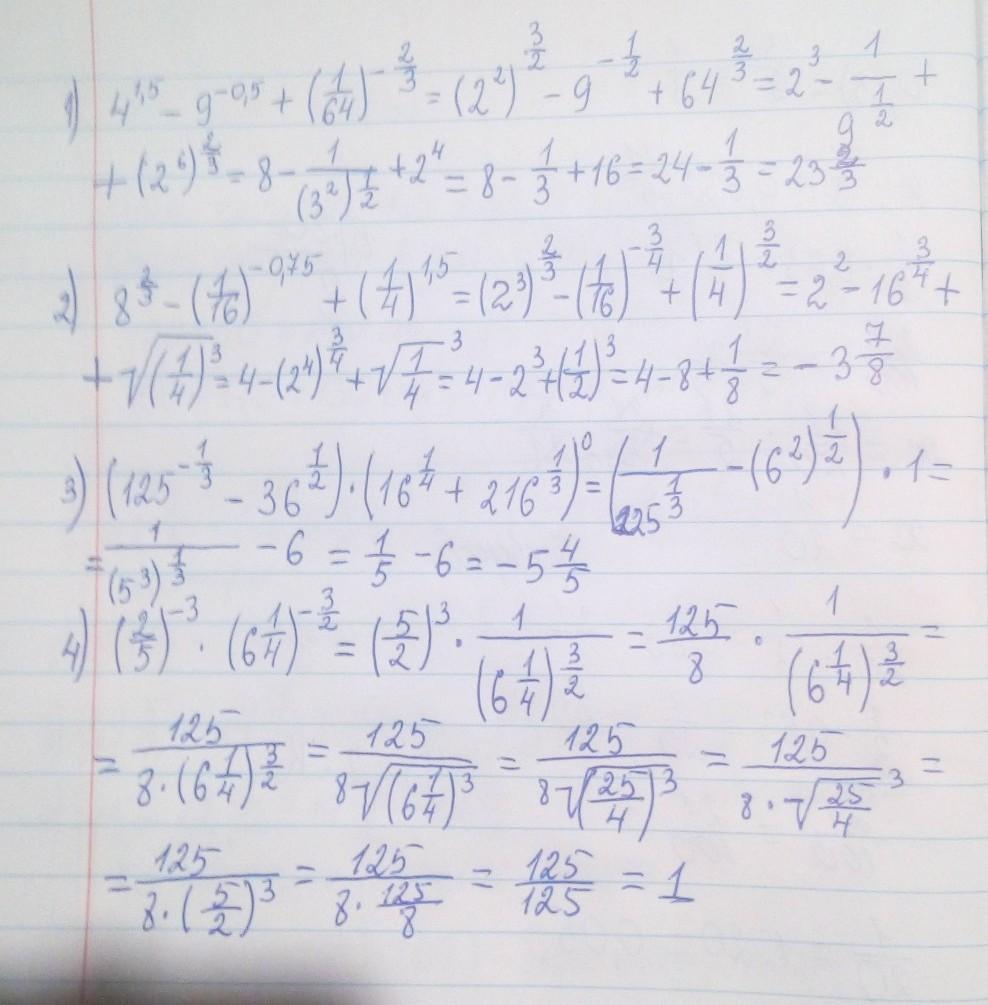 1) 4^{1,5} - 9^{-0,5} + (1/64)^{-2/3} = (2^2)^{3/2} - 9^{-1/2} + 64^{2/3} = 2^3 - 1/9^{1/2} +
+ (2^6)^{2/3} = 8 - 1/(3^2)^{1/2} + 2^4 = 8 - 1/3 + 16 = 24 - 1/3 = 23 2/3
2) 8^{2/3} - (1/16)^{-0,75} + (1/4)^{1,5} = (2^3)^{2/3} - (1/16)^{-3/4} + (1/4)^{3/2} = 2^2 - 16^{3/4} +
+ √(1/4)^3 = 4 - (2^4)^{3/4} + √(1/4)^3 = 4 - 2^3 + (1/2)^3 = 4 - 8 + 1/8 = - 3 7/8
3) (125^{-1/3} - 36^{1/2}) · (16^{1/4} + 216^{1/3})^0 = (1/125^{1/3} - (6^2)^{1/2}) · 1 =
= 1/(5^3)^{1/3} - 6 = 1/5 - 6 = - 5 4/5
4) (2/5)^{-3} · (6 1/4)^{-3/2} = (5/2)^3 · 1/(6 1/4)^{3/2} = 125/8 · 1/(6 1/4)^{3/2} =
= 125/(8 · (6 1/4)^{3/2}) = 125/(8√((6 1/4)^3)) = 125/(8√((25/4)^3)) = 125/(8 · √(25/4)^3) =
= 125/(8 · (5/2)^3) = 125/(8 · 125/8) = 125/125 = 1